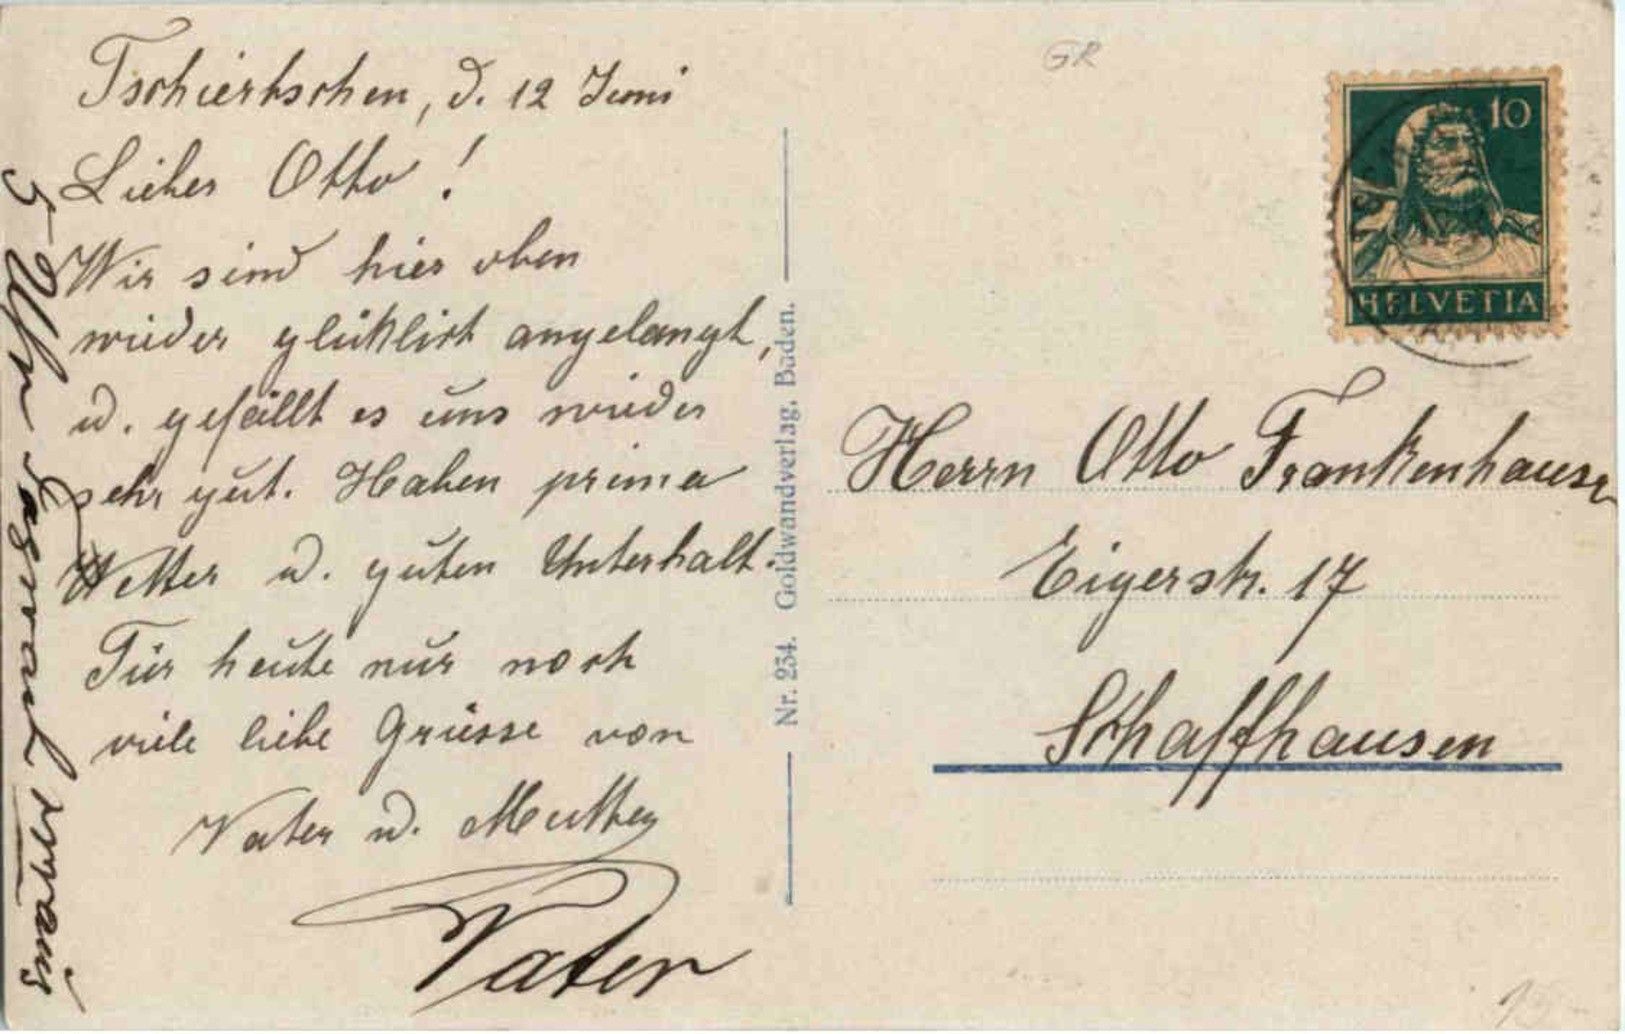 Tschiertschen, d. 12 Juni
Lieber Otto!
Wir sind hier oben
wieder glüklich angelangt,
u. gefällt es uns wieder
sehr gut. Haben prima
Wetter u. guten Unterhalt.
Für heute nur noch
viele liebe Grüsse von
Vater u. Mutter
Vater
5 Uhr
Nr. 234. Goldwandverlag, Baden.
GR
10
HELVETIA
Herrn Otto Frankenhauser
Eigerstr. 17
Schaffhausen